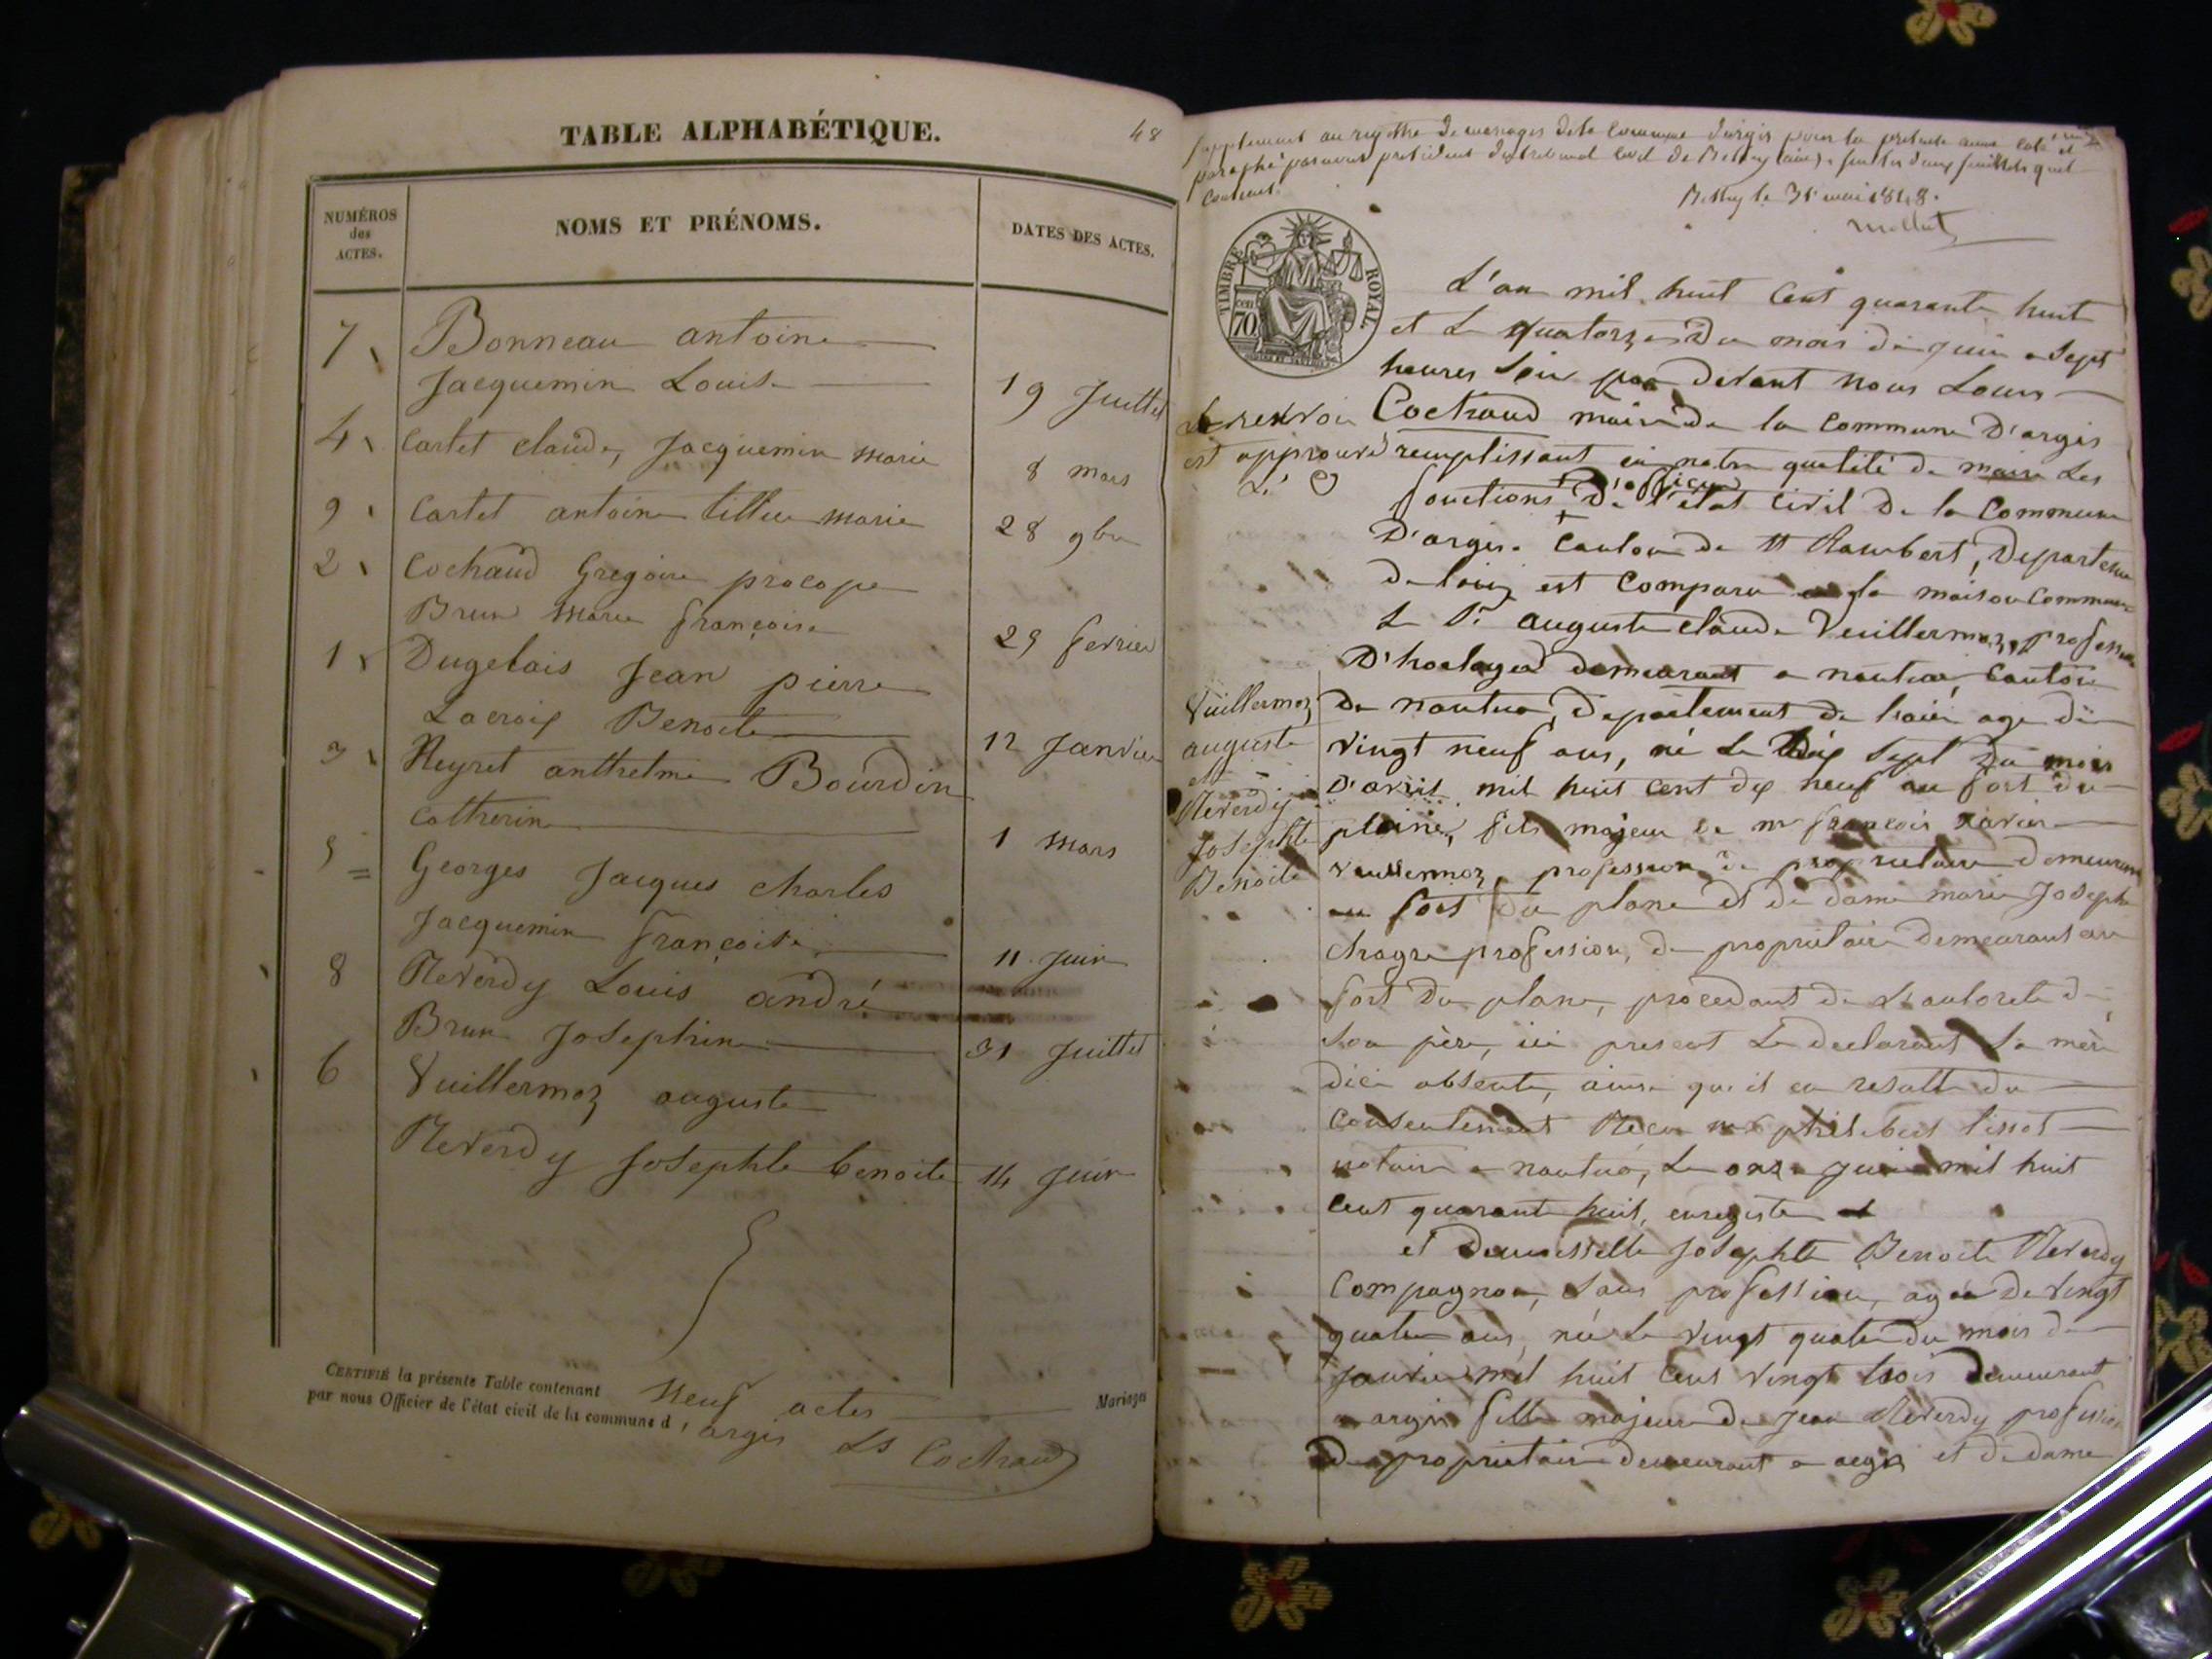 TABLE ALPHABÉTIQUE.
48
NUMÉROS
des
ACTES.
NOMS ET PRÉNOMS.
DATES DES ACTES.
7 Bonneau antoine
Jacquemin Louise 19 Juillet
4 Cartet claude, Jacquemin marie 8 mars
9 Cartet antoine marie 28 9bre
2 Cochaud Gregoire procope
Brun marie françoise 29 fevrier
1 Dugelais Jean pierre
Lacroix Benoite 12 Janvier
3 Neyret anthelme Bourdin
Catherine 1 mars
5 Georges Jacques charles
Jacquemin françoise 11 Juin
8 Reverdy Louis andré
Brun Josephine 31 Juillet
6 Vuillermoz auguste
Reverdy Josephte benoite 14 Juin
CERTIFIÉ la présente Table contenant Neuf actes Mariages
par nous Officier de l'état civil de la commune d'argis Ls Cochaud
Supplement au registre de mariages de la Commune d'argis pour la presente année coté et
paraphé par nous president du tribunal Civil de Belley (ain) sur les deux feuillets qu'il
contient.
Belley le 31 mai 1848.
TIMBRE ROYAL
cen 70
L'an mil huit Cent quarante huit
et le quatorze du mois de juin a Sept
heures Soir par devant nous Louis
Cochaud maire de la commune D'argis
remplissant en notre qualité de maire Les
fonctions D'officier de l'état civil De la Commune
Le renvoi
est approuvé
D'argis Canton de St Rambert, Departement
de l'ain est Comparu a la maison Commune
Le Sr auguste claude Vuillermoz, professeur
D'horloger demeurant a nantua, Canton
Vuillermoz
auguste
et
Reverdy
Josephte
Benoite
de nantua, Departement de l'ain agé de
vingt neuf ans, né Le dix Sept Du mois
D'avril mil huit cent dix neuf au fort du
plane, fils majeur de mr françois Xavier
Vuillermoz, profession de proprietaire demeurant
au fort du plane et de dame marie Josephe
chagre profession, de proprietaire demeurant au
fort du plane, procedant de L'autorité de
Son père, ici present Le declarant La mère
dici absente, ainsi qu'il en resulte du
Consentement Recu mr philibert tissot
notaire a nantua, Le onze juin mil huit
Cent quarante huit, enregistré
et Demoisselle Josephte Benoite Reverdy
Compagnon, Sans profession, agée De Vingt
quatre ans, née Le Vingt quatre du mois de
janvier mil huit Cent Vingt trois demeurant
a argis fille majeure de jean Reverdy profession
De proprietaire demeurant a argis et de dame